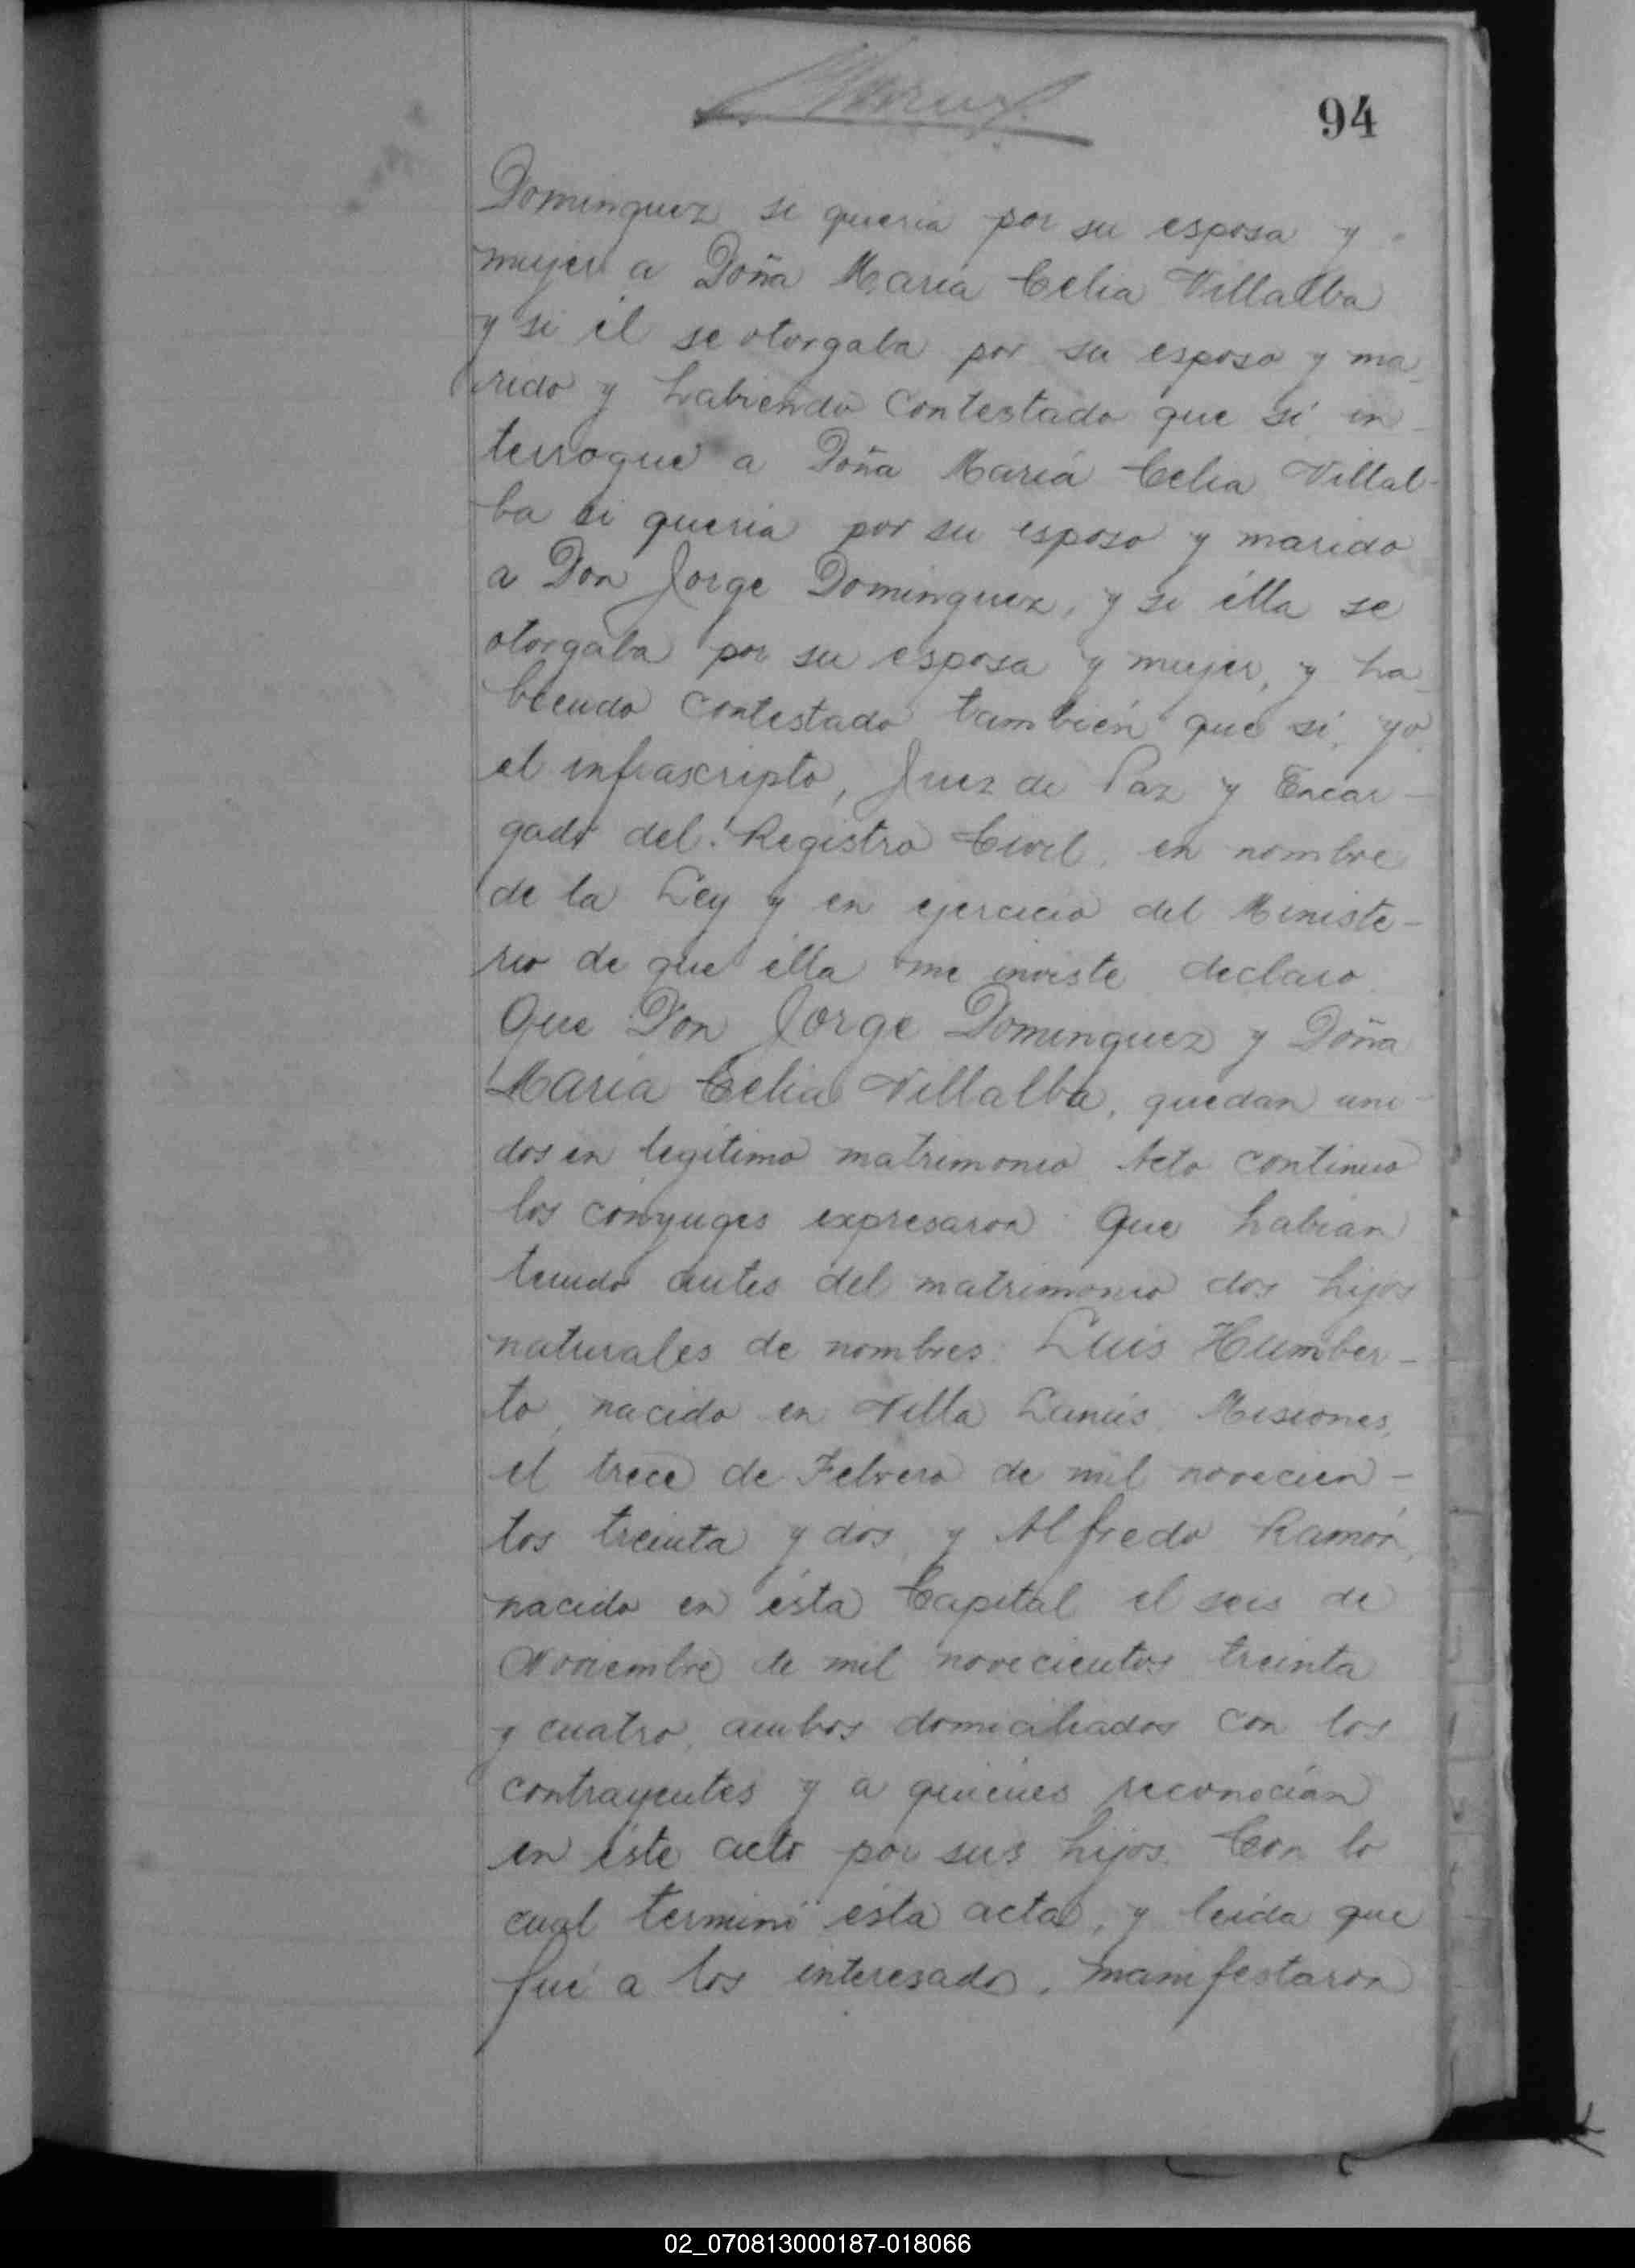 94
Dominguez si queria por su esposa y
mujer a Doña María Celia Villalba
y si él se otorgaba por su esposo y ma-
rido y habiendo contestado que sí in-
terrogué a Doña María Celia Villal-
ba si queria por su esposo y marido
a Don Jorge Dominguez, y si élla se
otorgaba por su esposa y mujer, y ha-
biendo contestado también que sí, yo
el infrascripto, Juez de Paz y Encar-
gado del Registro Civil, en nombre
de la Ley y en ejercicio del Ministe-
rio de que élla me inviste declaro
Que Don Jorge Dominguez y Doña
María Celia Villalba, quedan uni-
dos en legítimo matrimonio Acto continuo
los cónyuges expresaron Que habían
tenido antes del matrimonio dos hijos
naturales de nombres: Luis Humber-
to, nacido en Villa Lanús, Misiones,
el trece de Febrero de mil novecien-
tos treinta y dos, y Alfredo Ramón,
nacido en ésta Capital el seis de
Noviembre de mil novecientos treinta
y cuatro, ambos domiciliados con los
contrayentes y a quiénes reconocían
en éste acto por sus hijos. Con lo
cual terminó ésta acta, y leída que
fué a los interesados, manifestaron
02_070813000187-018066